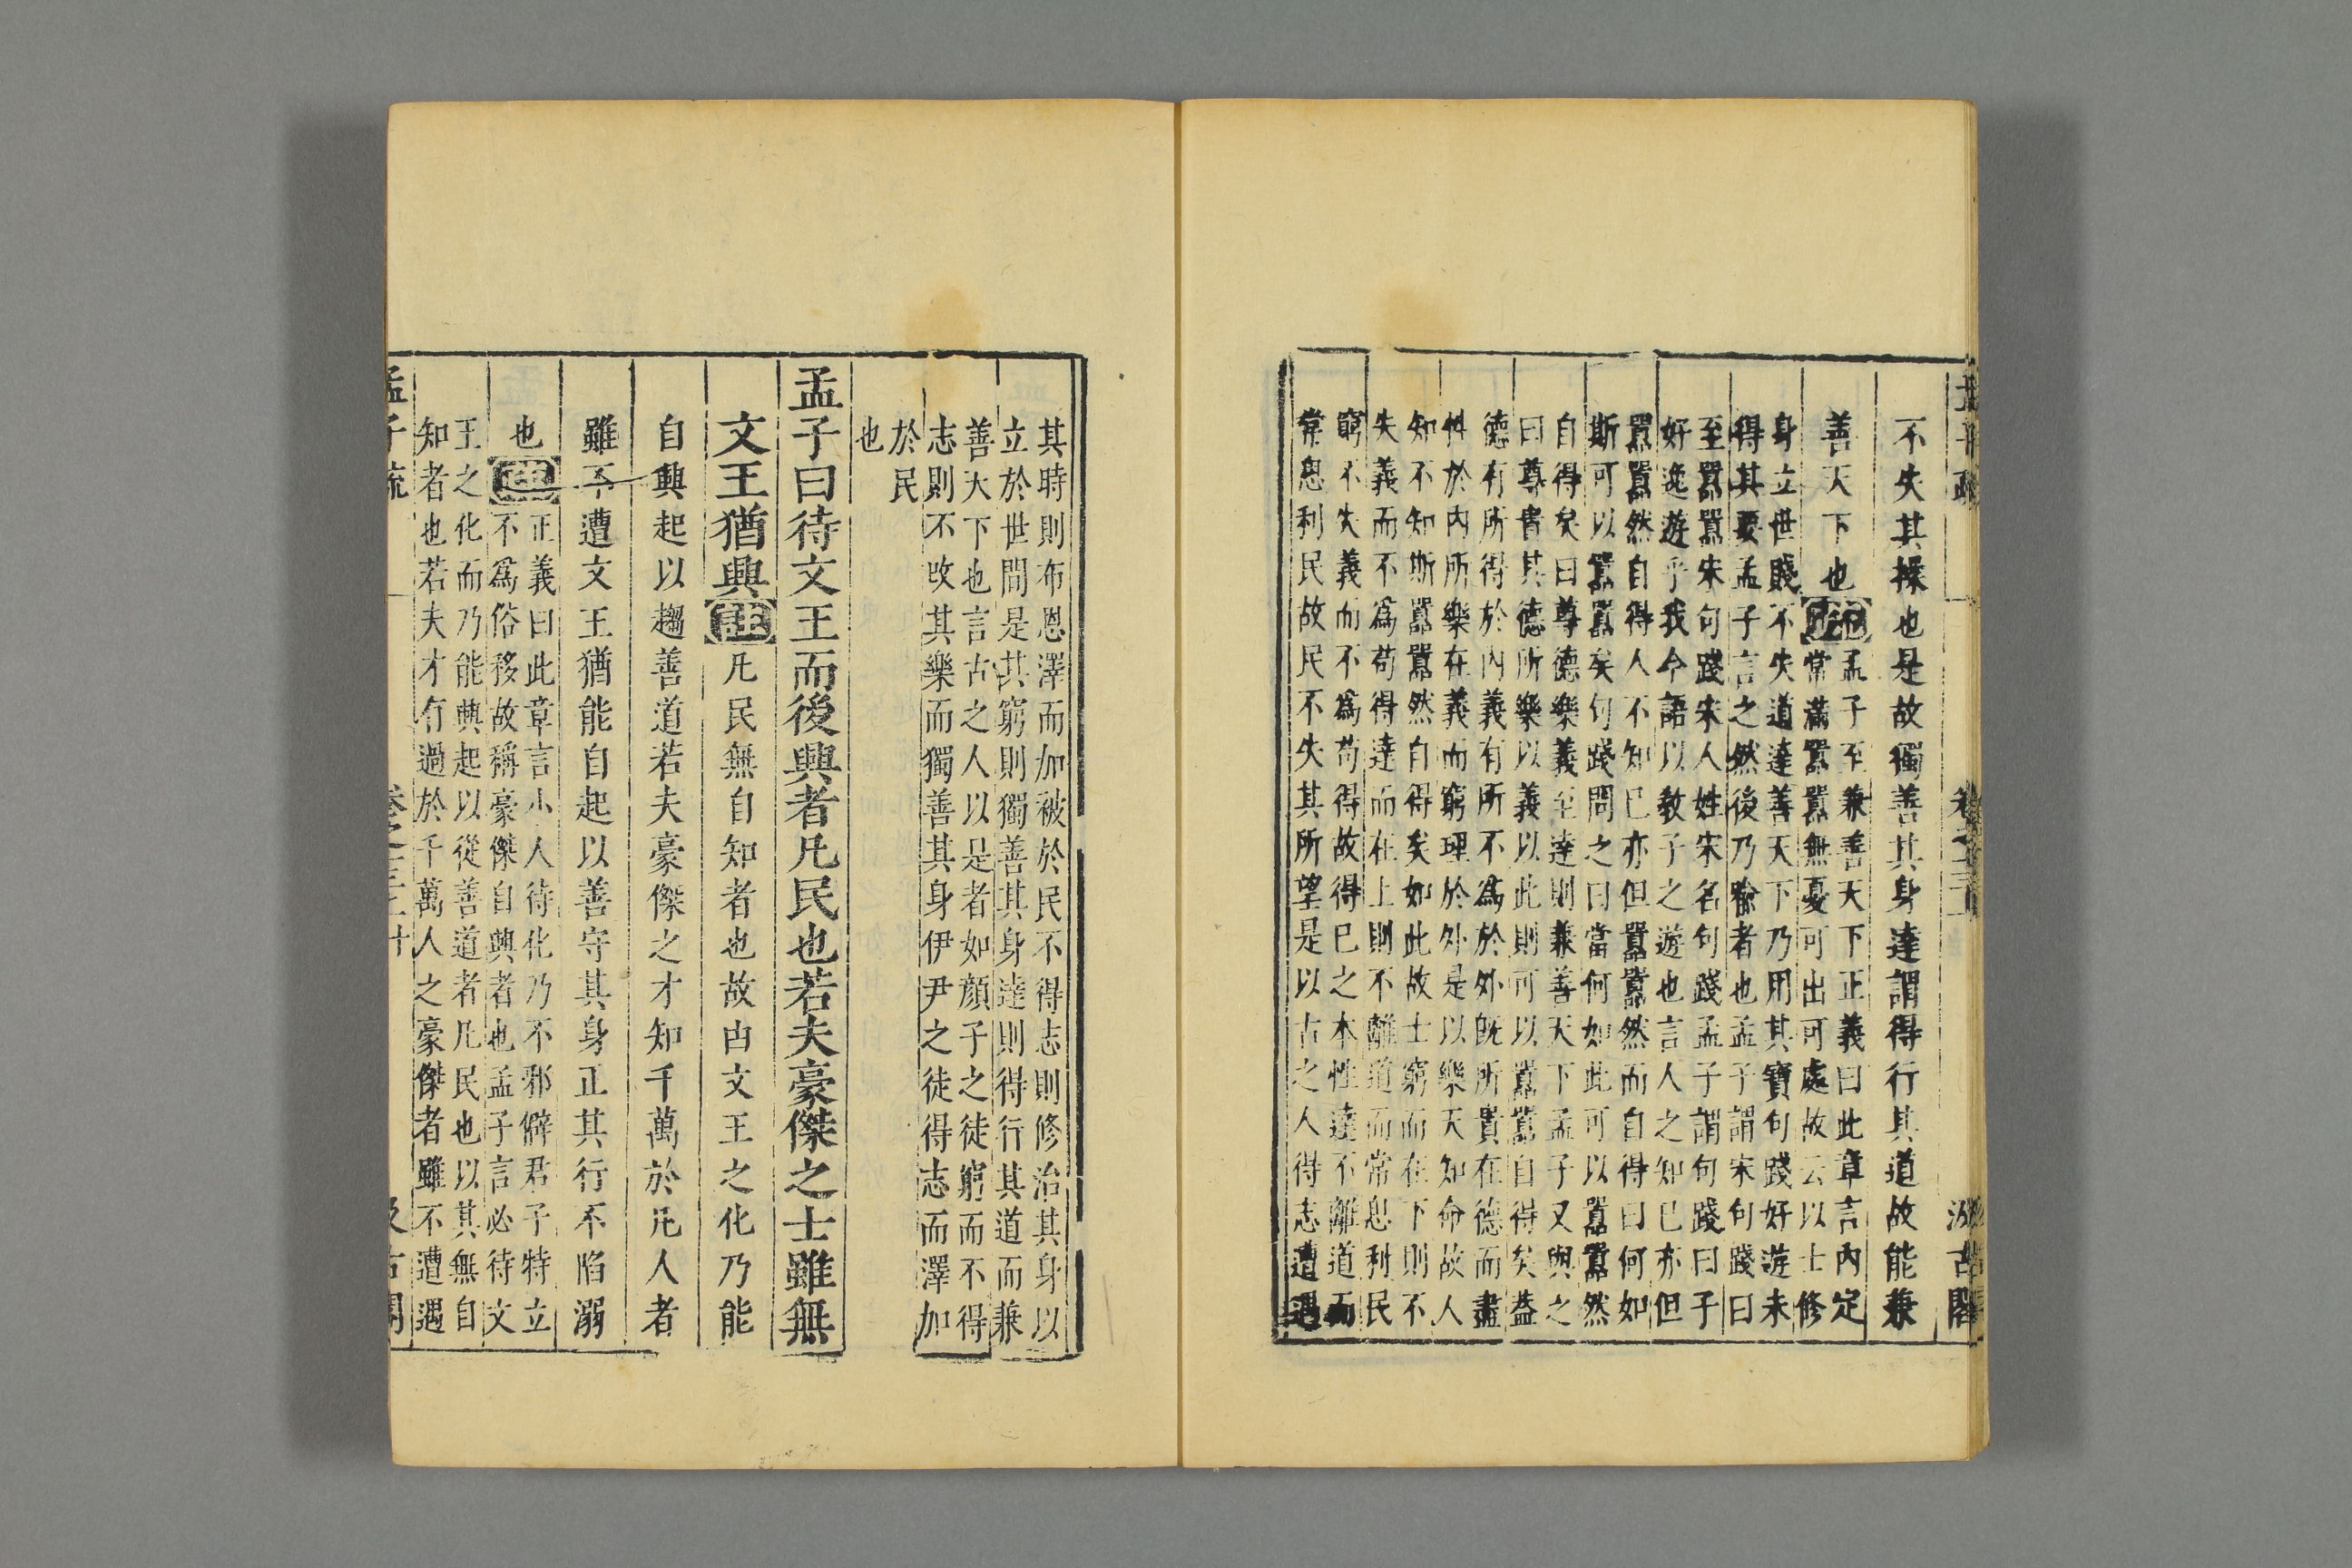 不失其操也是故獨善其身達謂得行其道故能兼
善天下也
孟子至兼善天下正義曰此章言內定
常滿囂囂無憂可出可處故云以士修
身立世賤不失道達善天下乃用其寶句踐好遊未
得其要孟子言之然後乃喻者也孟子謂宋句踐曰
至囂囂宋句踐宋人姓宋名句踐孟子謂句踐曰子
好逸遊乎我今語以教子之遊也言人之知已亦但
囂囂然自得人不知已亦但囂囂然而自得曰何如
斯可以囂囂矣句踐問之曰當何如此可以囂囂然
自得矣曰尊德樂義至達則兼善天下孟子又與之
曰尊貴其德所樂以義以此則可以囂囂自得矣蓋
德有所得於內義有所不為於外既所貴在德而盡
性於內所樂在義而窮理於外是以樂天知命故人
知不知斯囂囂然自得矣如此故士窮而在下則不
失義而不為苟得達而在上則不離道而常思利民
窮不失義而不為苟得故得已之本性達不離道而
常思利民故民不失其所望是以古之人得志遭遇
孟子疏
汲古閣
其時則布恩澤而加被於民不得志則修治其身以
立於世間是其窮則獨善其身達則得行其道而兼
善天下也言古之人以是者如顏子之徒窮而不得
志則不改其樂而獨善其身伊尹之徒得志而澤加
於民
也
孟子曰待文王而後興者凡民也若夫豪傑之士雖無
文王猶興註凡民無自知者也故由文王之化乃能
自興起以趨善道若夫豪傑之才知千萬於凡人者
雖不遭文王猶能自起以善守其身正其行不陷溺
也
正義曰此章言小人待化乃不邪僻君子特立
不為俗移故稱豪傑自興者也孟子言必待文
王之化而乃能興起以從善道者凡民也以其無自
知者也若夫才有過於千萬人之豪傑者雖不遭遇
孟子疏